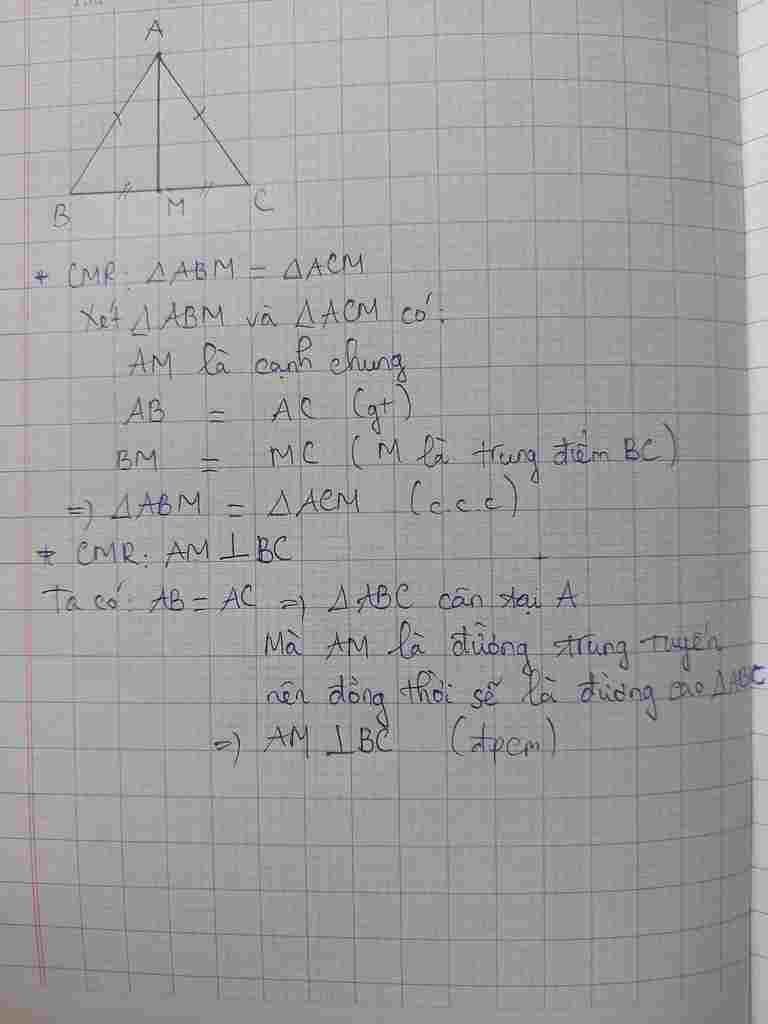 A
B
M
C
* CMR: △ABM = △ACM
Xét △ABM và △ACM có:
AM là cạnh chung
AB = AC (gt)
BM = MC (M là trung điểm BC)
=) △ABM = △ACM (c.c.c)
* CMR: AM ⊥ BC
Ta có: AB = AC =) △ABC cân tại A
Mà AM là đường trung tuyến
nên đồng thời sẽ là đường cao △ABC
=) AM ⊥ BC (đpcm)